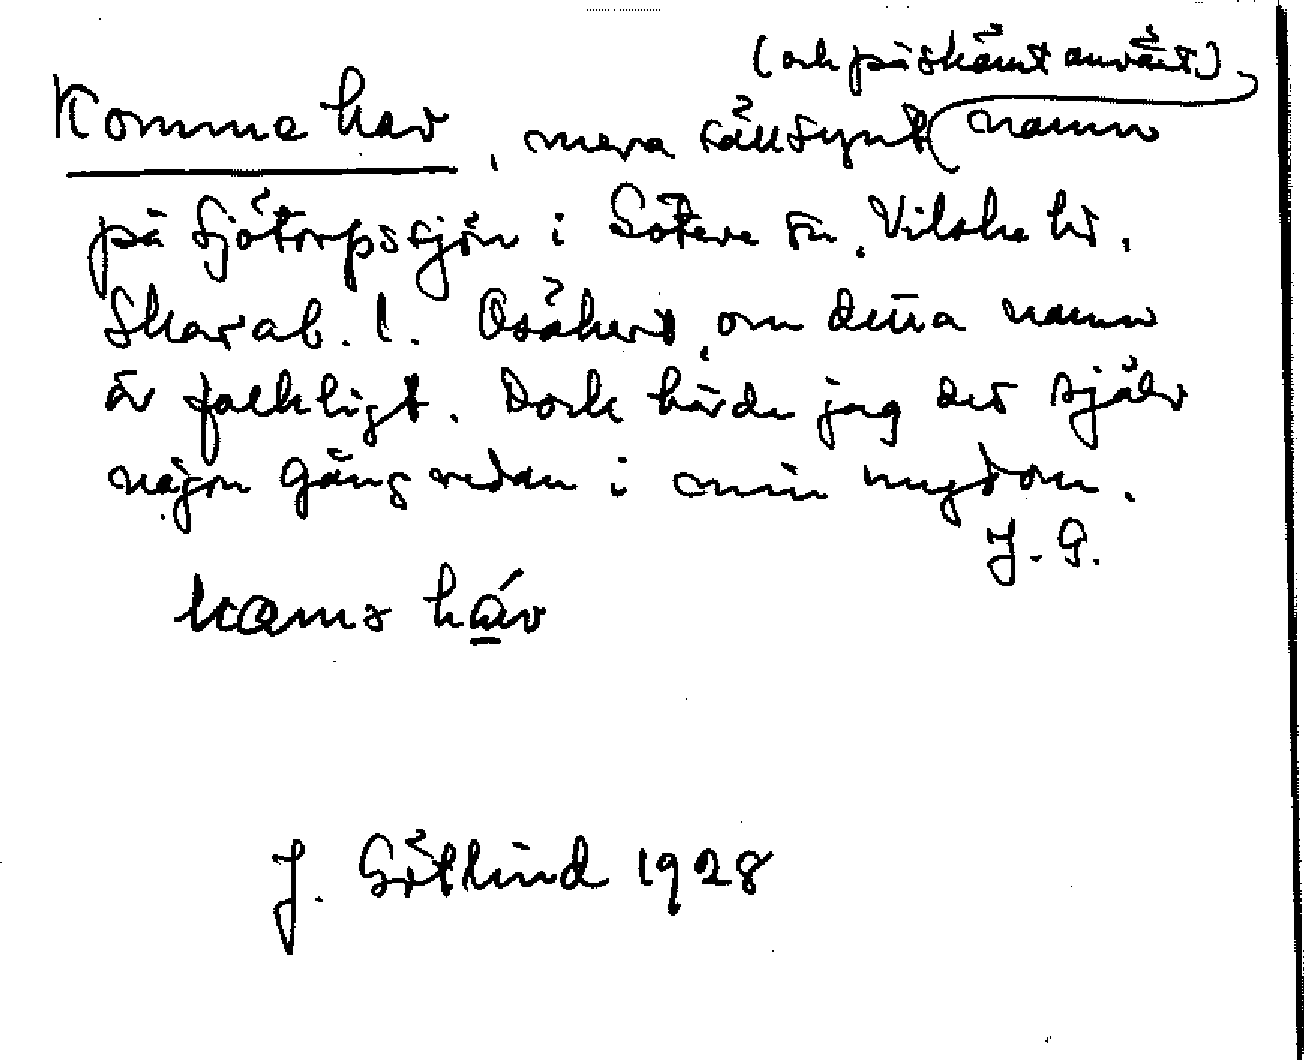 (och på skämt använt)
Komme hav, mera sällsynt namn
på Sjötorpssjön i Sötene sn. Vilske hd.
Skarab. l. Osäkert, om detta namn
är folkligt. Dock hörde jag det själv
någon gång redan i min ungdom.
J. G.
háv
J. Götlind 1928